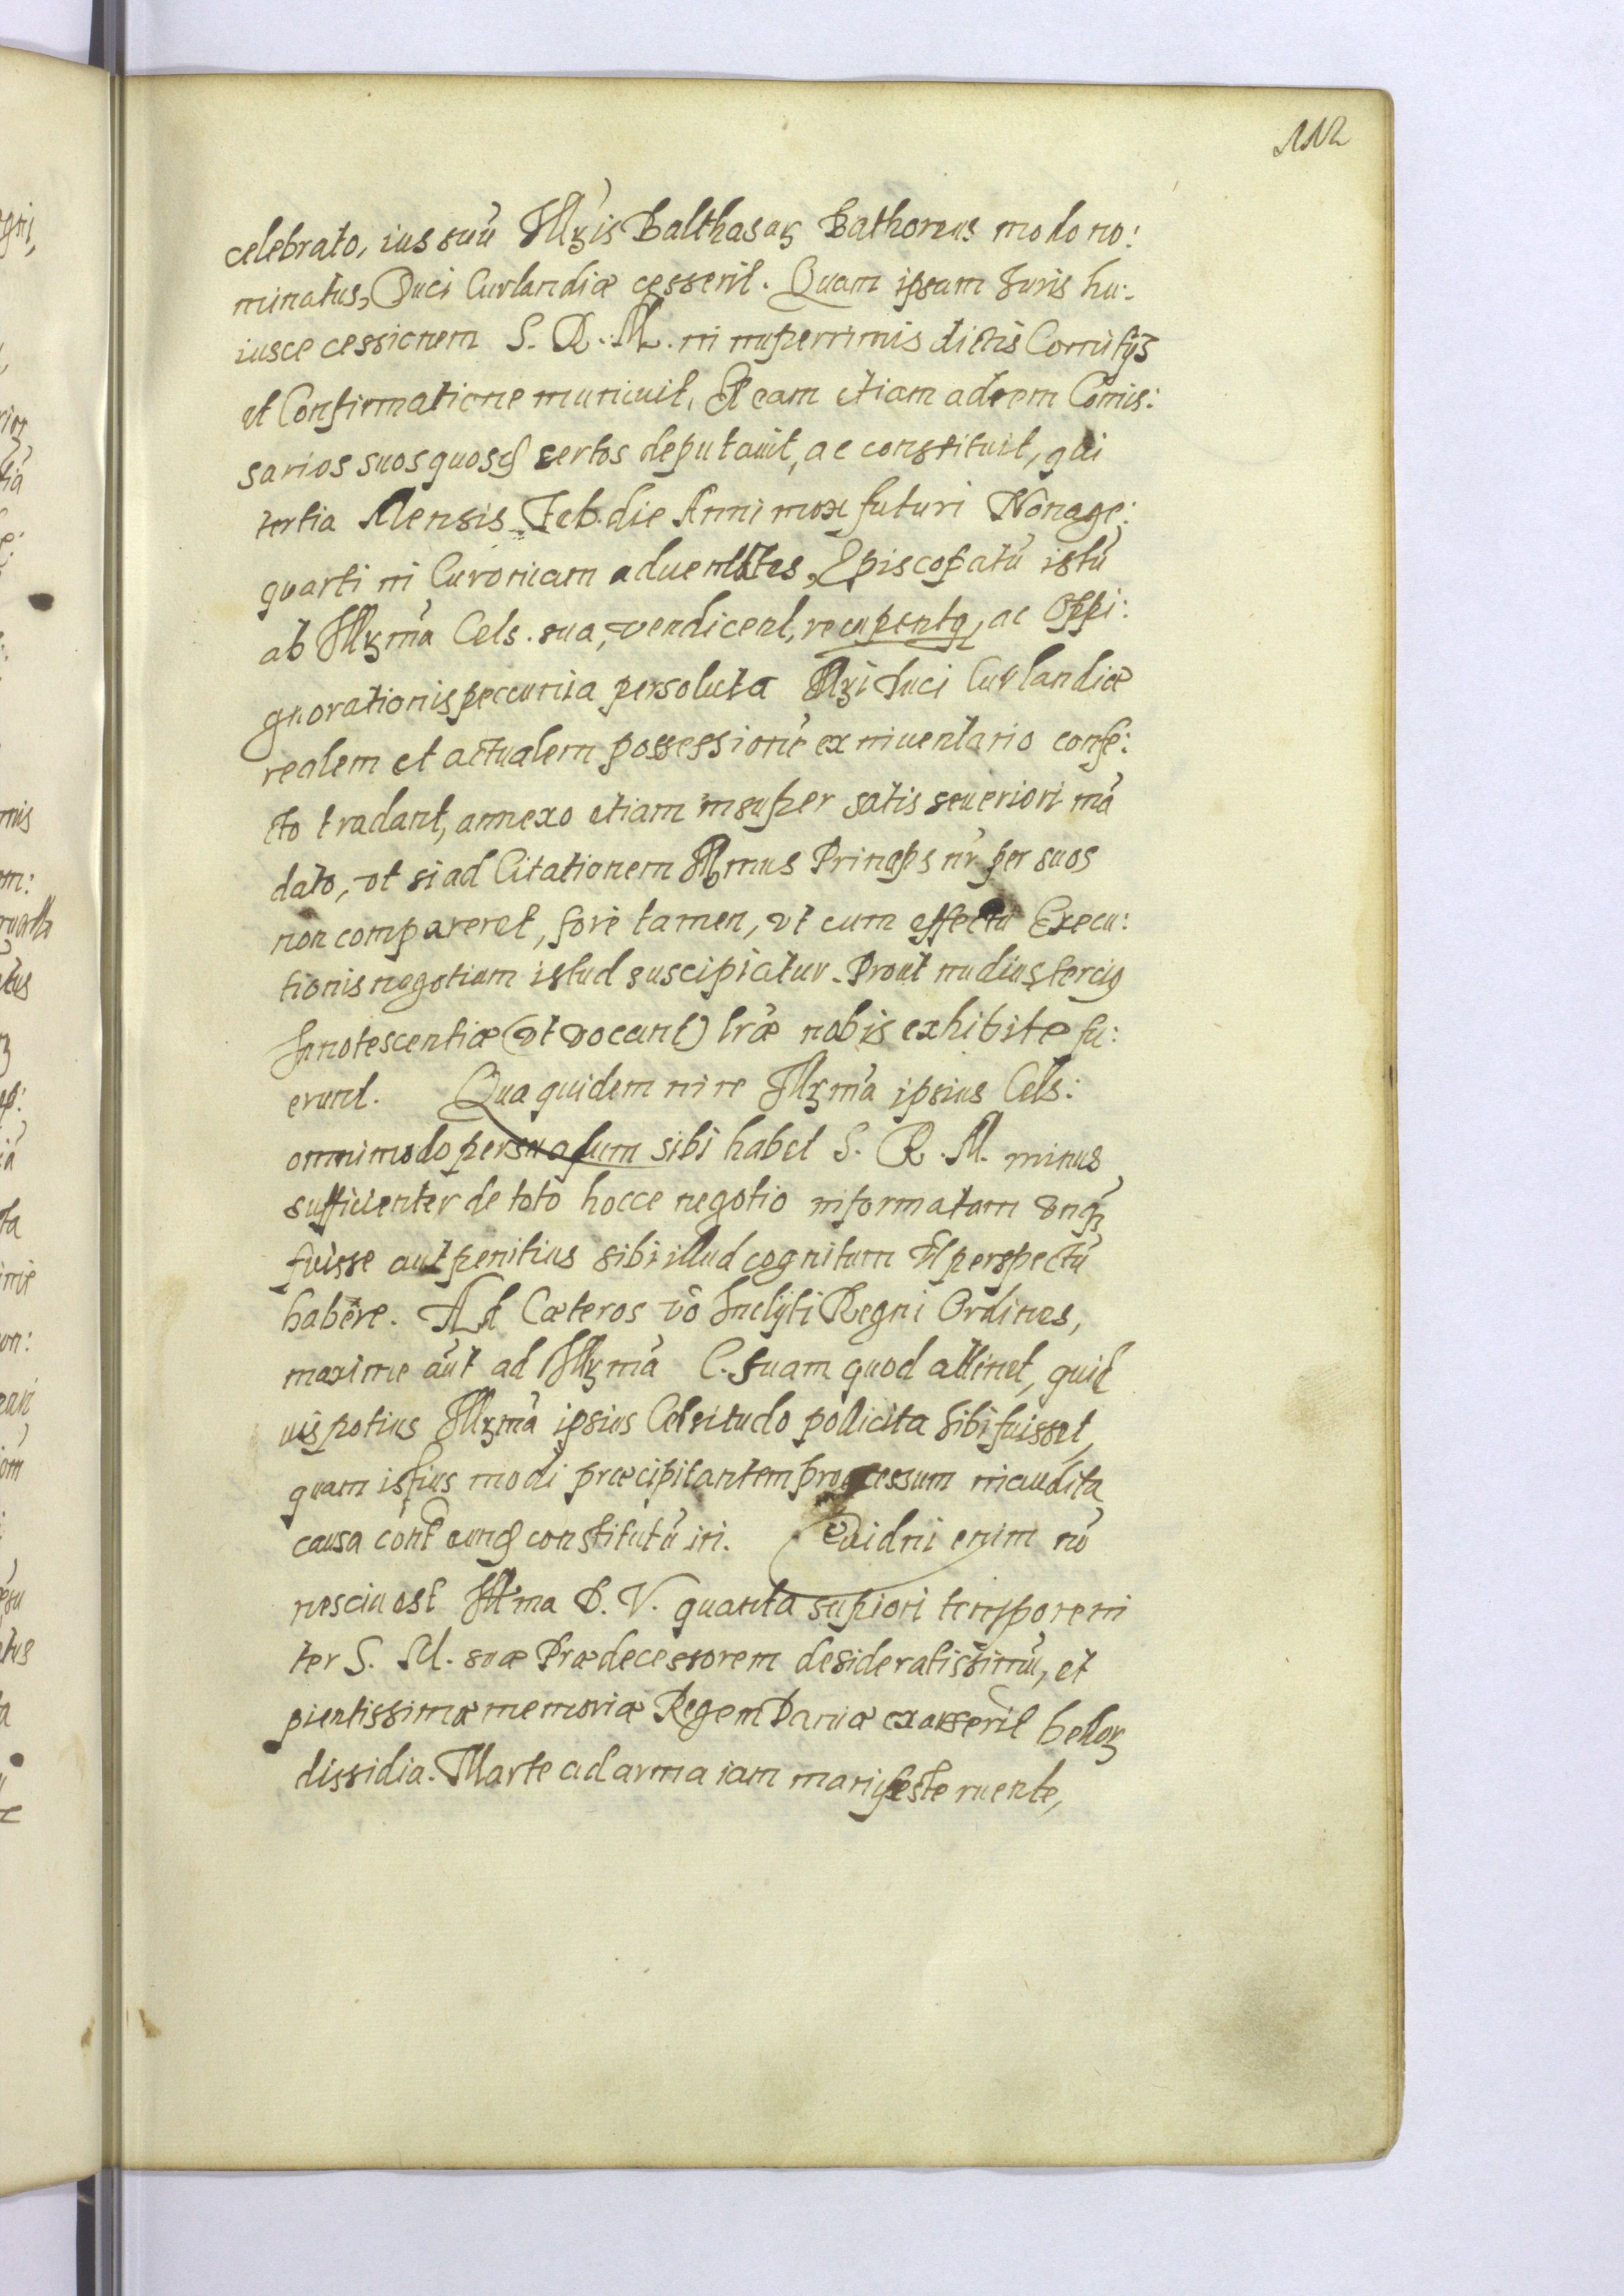 112
celebrato, ius suũ Illris Balthasar Bathoreus modo no:
minatus, Duci Curlandiæ cesserit. Quam ipsam Juris hu:
iusce cessionem S. R. M. in nuperrimis dictis Comitijs
et Confirmatione muniuit. Et eam etiam ad rem Comis:
sarios suos quosq certos deputauit, ac constituit, qui
tertia Mensis Feb. die Anni mox futuri Nonage:
quarti in Curoniam aduentãtes, Episcopatũ istũ
ab Illrmã Cels. sua, vendicent, recuperentq, ac Oppi:
gnorationis peccunia persoluta Illri Duci Curlandiæ
realem et actualem possessionẽ ex inuentario confe:
cto tradant, annexo etiam insuper satis seueriori mã
dato, vt si ad Citationem Illmus Princeps nr̃ per suos
non compareret, fore tamen, vt cum effectu Execu:
tionis negotium istud suscipiatur. Prout nudius tercig
Innotescentiæ (vt vocant) lr̃æ nobis exhibite fu:
erunt. Qua quidem in re Illrmã ipsius Cels:
omnimodo persuasum sibi habet S. R. M. minus
sufficienter de toto hocce negotio informatam vnq̃
fuisse aut penitius sibi illud cognitum vel perspectũ
habere. Ad Cæteros võ Inclÿti Regni Ordines,
maxime aũt ad Illrmã C. suam quod attinet, quid
uis potius Illrmã ipsius Celsitudo pollicita sibi fuisset,
quam istius modi præcipitantem processum inaudita
causa cont eunq constitutũ iri. Quidni enim nõ
nesciu est Illma D. V. quanta supiori tempore in
ter S. M. suæ Prædecessorem desideratissimũ, et
pientissimæ memoriæ Regem Daniæ exarserit bellor
dissidia. Marte ad arma iam manifeste ruente,